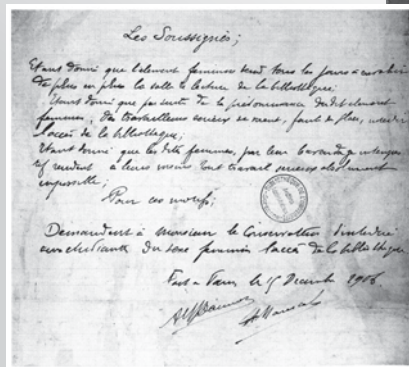 Les Soussignés;
Etant donné que l'élément féminin tend tous les jours à envahir
de plus en plus la salle de lecture de la bibliothèque;
Etant donné que par suite de la prédominance dudit élément
féminin, des travailleurs sérieux se voient, faute de place,
l'accès de la bibliothèque;
Etant donné que les dites femmes, par leur bavardage
rendent à leurs voisins tout travail sérieux absolument
impossible;
Pour ces motifs;
Demandent à Monsieur le Conservateur d'interdire
aux étudiants du sexe féminin l'accès de la bibliothèque
Fait à Paris le 5 Décembre 1906.